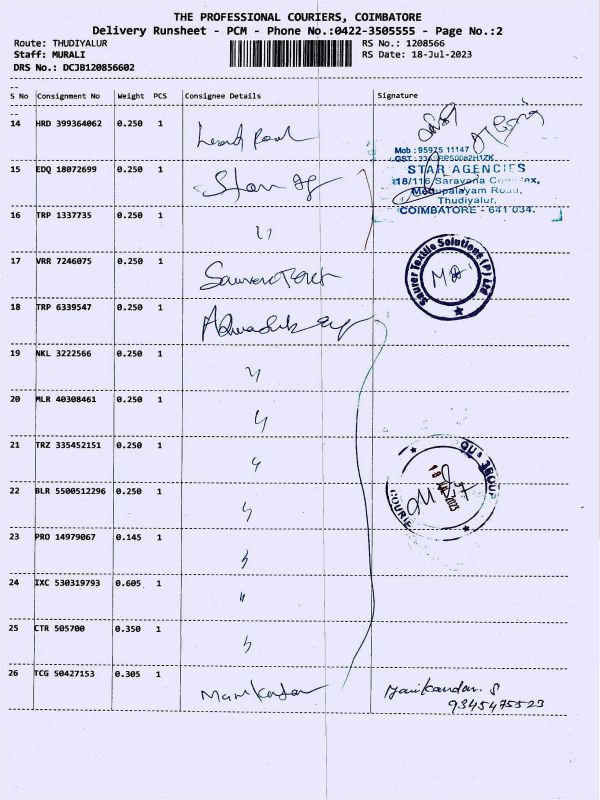 THE PROFESSIONAL COURIERS, COIMBATORE
Delivery Runsheet - PCM - Phone No.:0422-3505555 - Page No.:2
Route: THUDIYALUR RS No.: 1208566
Staff: MURALI RS Date: 18-Jul-2023
DRS No.: DCJB120856602
--
S No Consignment No Weight PCS Consignee Details Signature
--
14 HRD 399364062 0.250 1
Mob : 95975 11147
15 EDQ 18072699 0.250 1 Star
STAR AGENCIES
118/116, Saravana Complex,
Mettupalayam Road,
Thudiyalur,
COIMBATORE - 641 034.
16 TRP 1337735 0.250 1 "
17 VRR 7246075 0.250 1
Saurer Textile Solutions (P) Ltd
18 TRP 6339547 0.250 1
19 NKL 3222566 0.250 1 "
20 MLR 40308461 0.250 1 "
21 TRZ 335452151 0.250 1 "
GROUP
22 BLR 5500512296 0.250 1 "
COURIE
23 PRO 14979067 0.145 1 "
24 IXC 530319793 0.605 1 "
25 CTR 505700 0.350 1 "
26 TCG 50427153 0.305 1 Manikandan Manikandan. S
9345475523